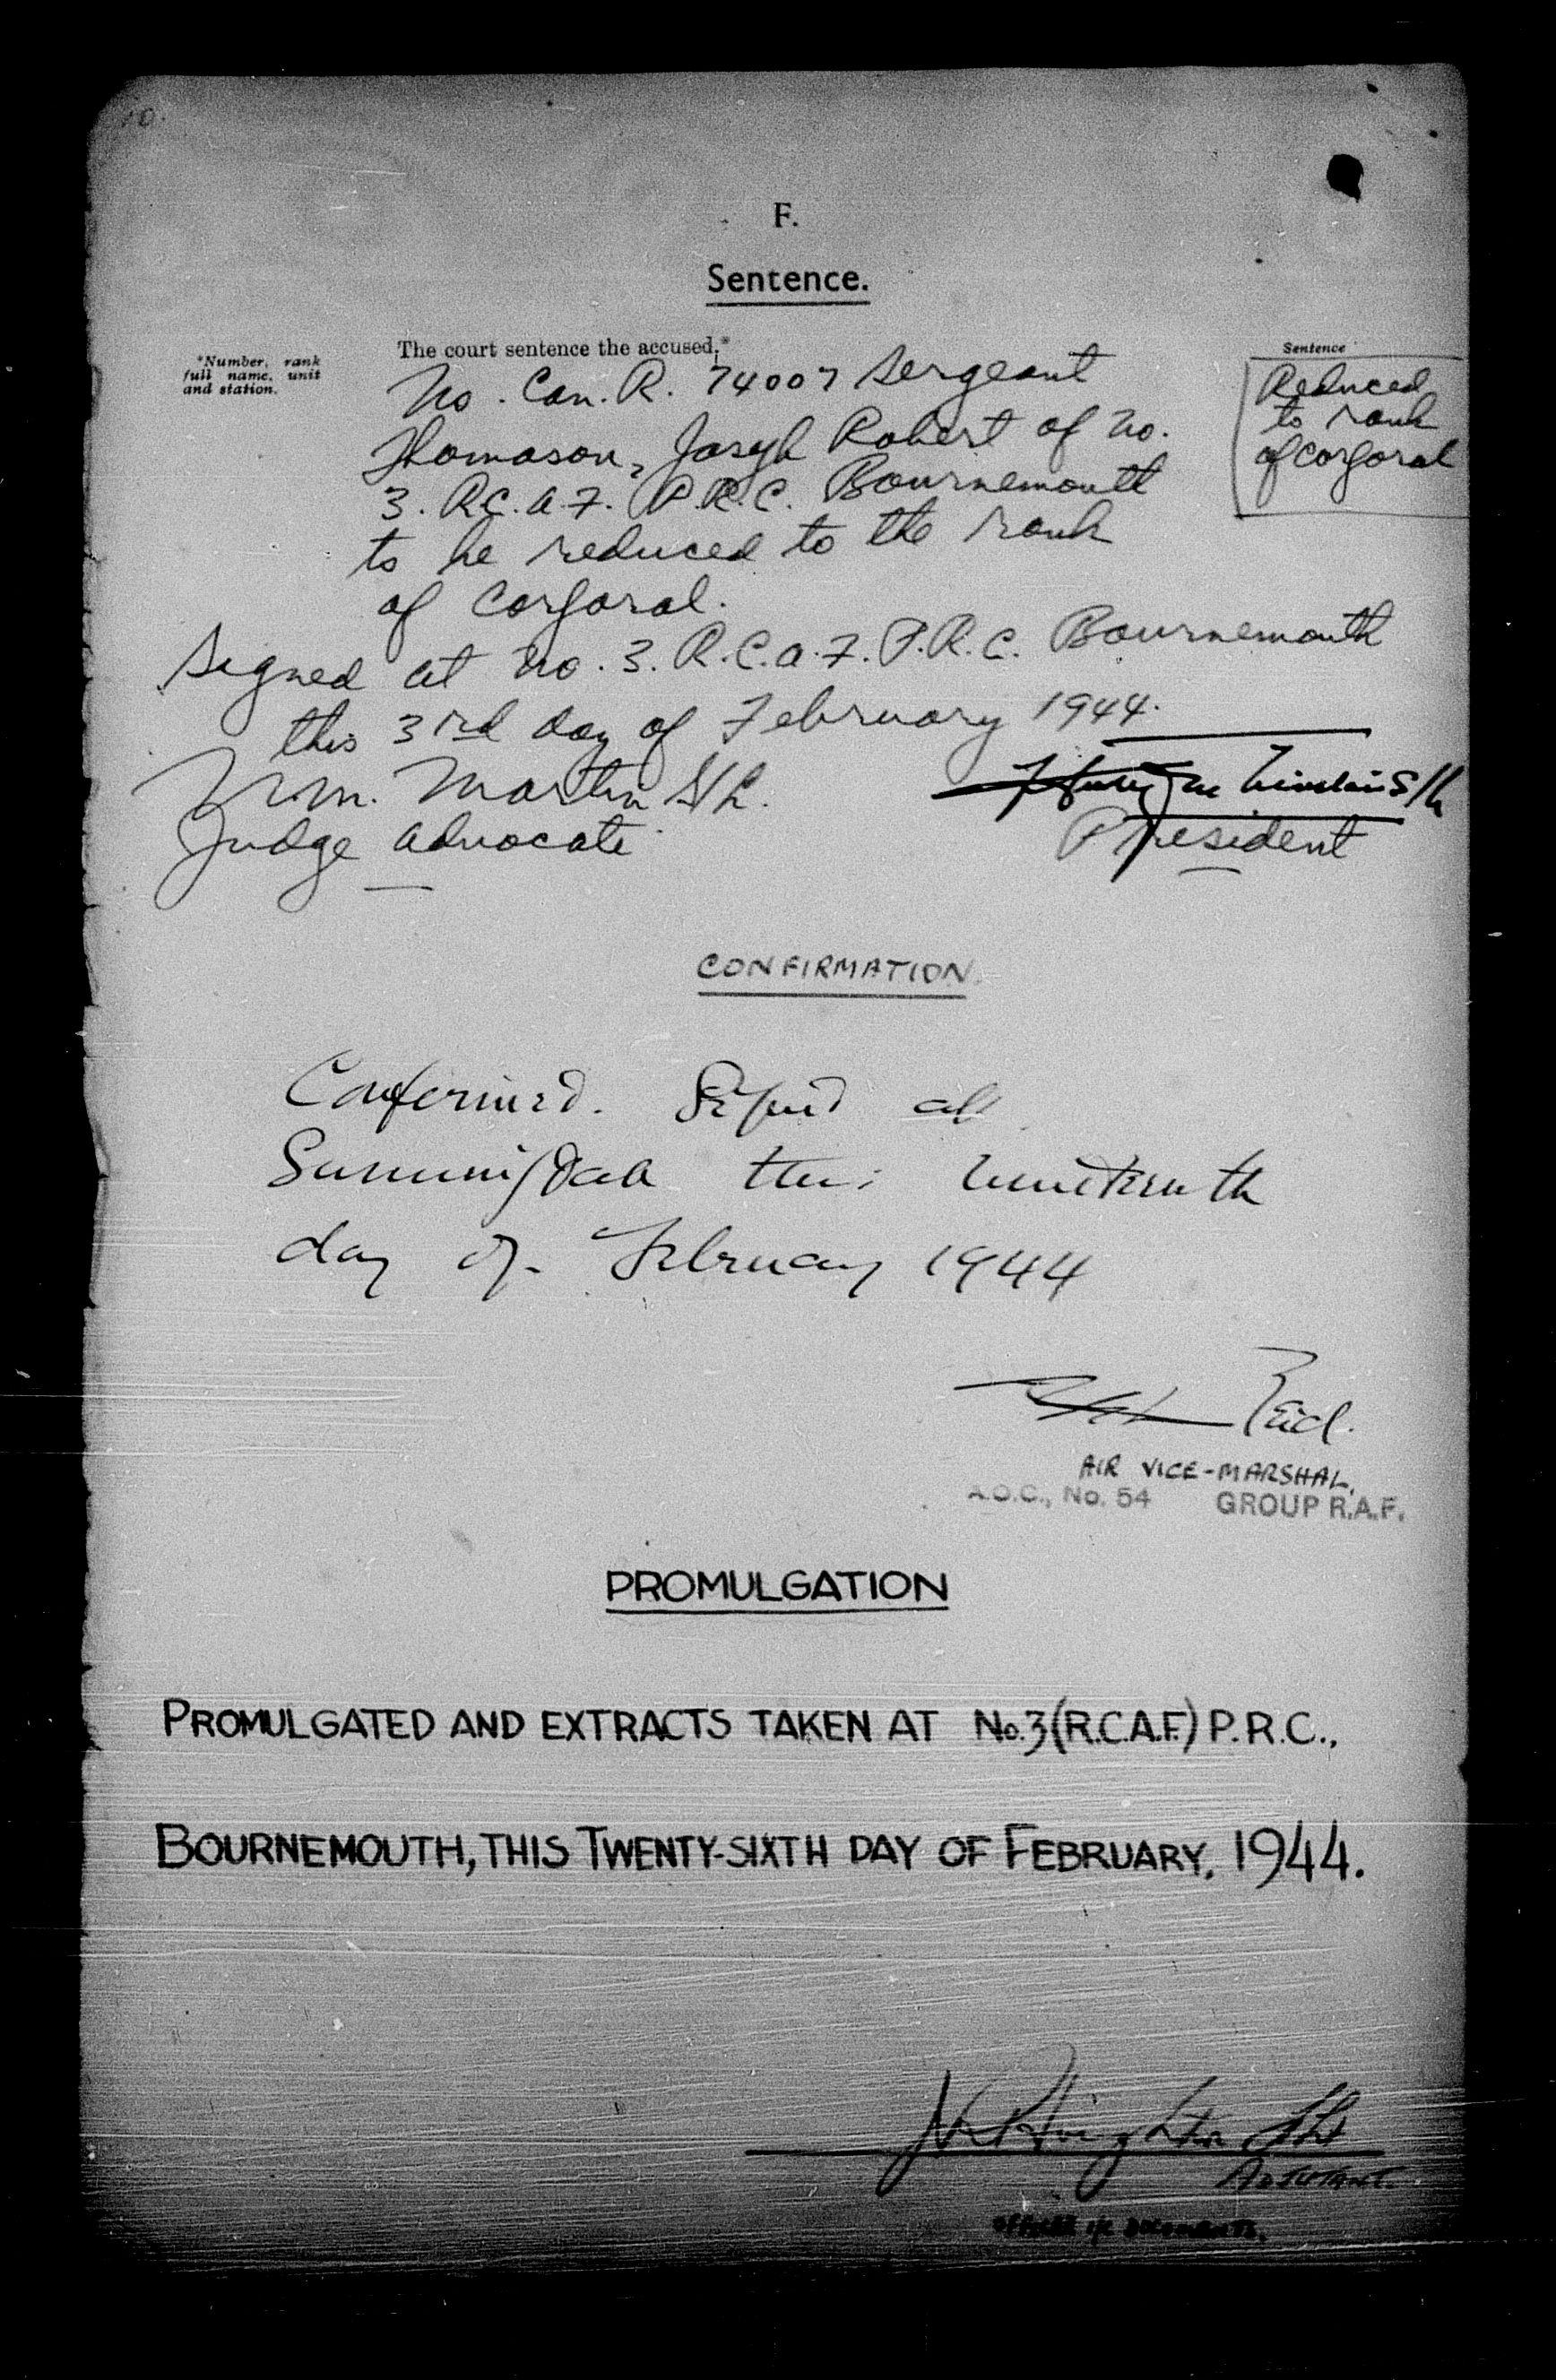 F.
Sentence.
*Number, rank
full name, unit
and station.
The court sentence the accused,*
No. Can. R. 74007 Sergeant
Thomason, Joseph Robert of No.
3. R.C.A.F. P.R.C. Bournemouth
to be reduced to the rank
of Corporal.
Sentence
Reduced
to rank
of Corporal
Signed at No. 3. R.C.A.F. P.R.C. Bournemouth
this 3rd day of February 1944.
Martin S/L.
Judge Advocate
S/L
President
CONFIRMATION
Confirmed. Signed at
Sunningdale this nineteenth
day of February 1944
Reid.
AIR VICE-MARSHAL,
A.O.C., No. 54 GROUP R.A.F.
PROMULGATION
PROMULGATED AND EXTRACTS TAKEN AT No.3 (R.C.A.F.) P.R.C.,
BOURNEMOUTH, THIS TWENTY-SIXTH DAY OF FEBRUARY, 1944.
ADJUTANT.
OFFICER i/c DOCUMENTS.